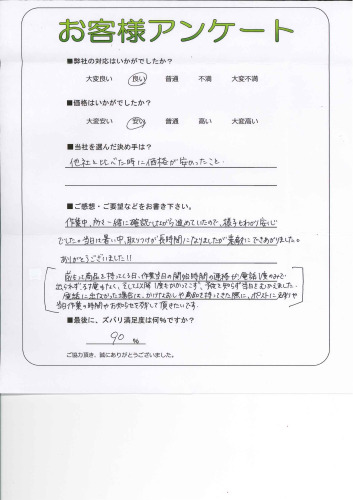 お客様アンケート
■弊社の対応はいかがでしたか?
大変良い 良い 普通 不満 大変不満
■価格はいかがでしたか?
大変安い 安い 普通 高い 大変高い
■当社を選んだ決め手は?
他社と比べた時に価格が安かったこと.
■ご感想・ご要望などをお書き下さい。
作業中、所々一緒に確認しながら進めていたので、様子もわかり安心
でした。当日は暑い中、取りつけが長時間になりましたが素敵にできあがりました。
ありがとうございました!!
前もって商品を持ってくる日、作業当日の開始時間の連絡が電話1度のみで
当日をむかえました。
電話に出なかった場合は、かけなおしや商品を持ってきた際に、ポストに
当日作業の時間やお知らせを残して頂きたいです。
■最後に、ズバリ満足度は何%ですか?
90 %
ご協力頂き、誠にありがとうございました。